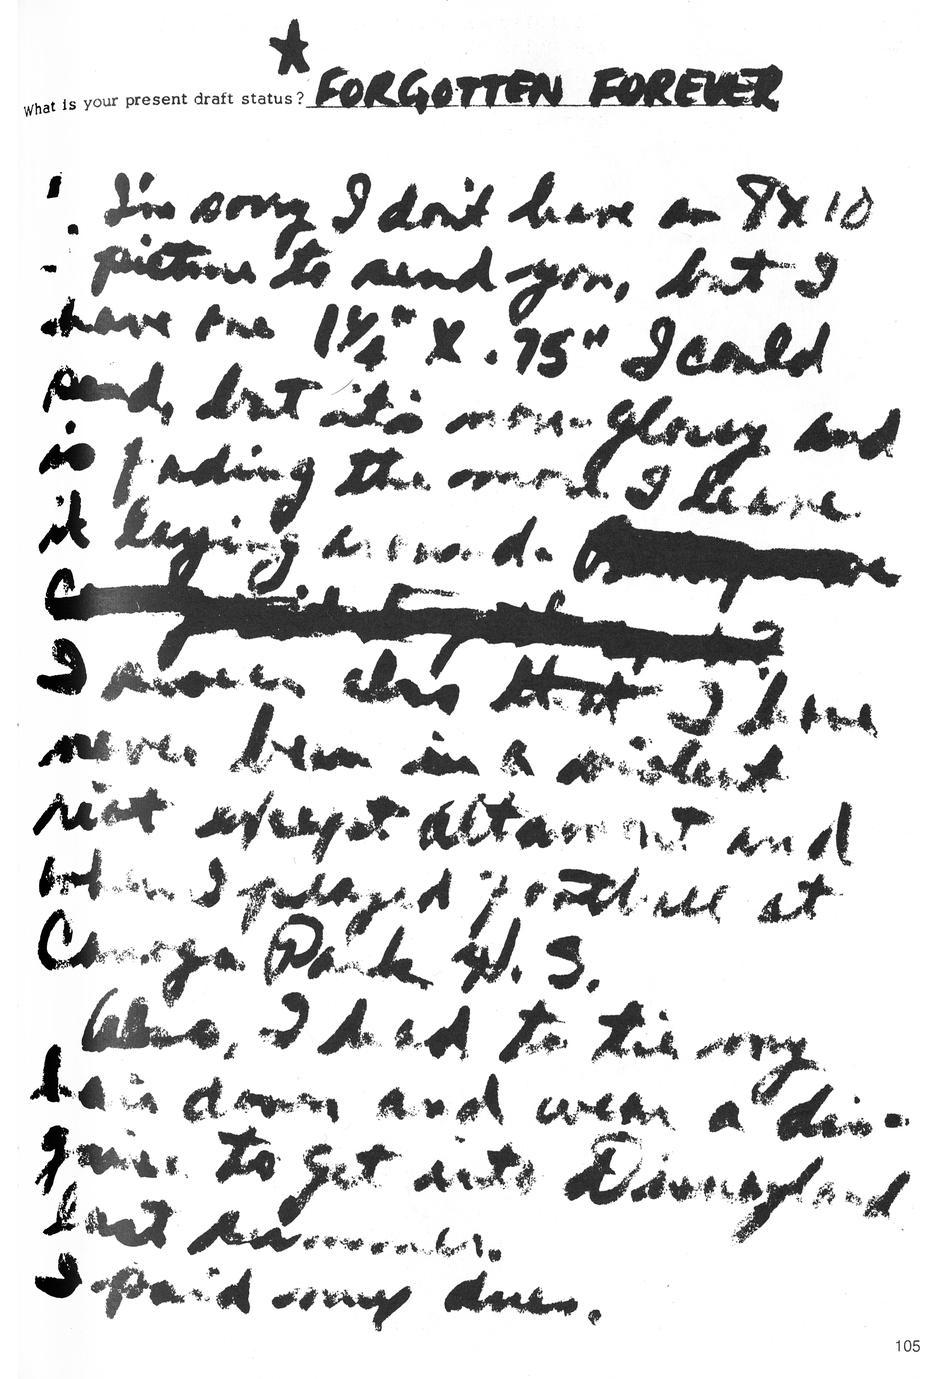 What is your present draft status? FORGOTTEN FOREVER
I'm sorry I don't have an 8x10
picture to send you, but I
have one 1¼" X .75" I could
send, but it's non-glossy and
is fading the more I leave
it laying around.
I swear also that I have
never been in a violent
riot except Altamont and
when I played football at
Canoga Park H.S.
Also, I had to tie my
hair down and wear a dis-
guise to get into Disneyland
last summer.
I paid my dues.
105